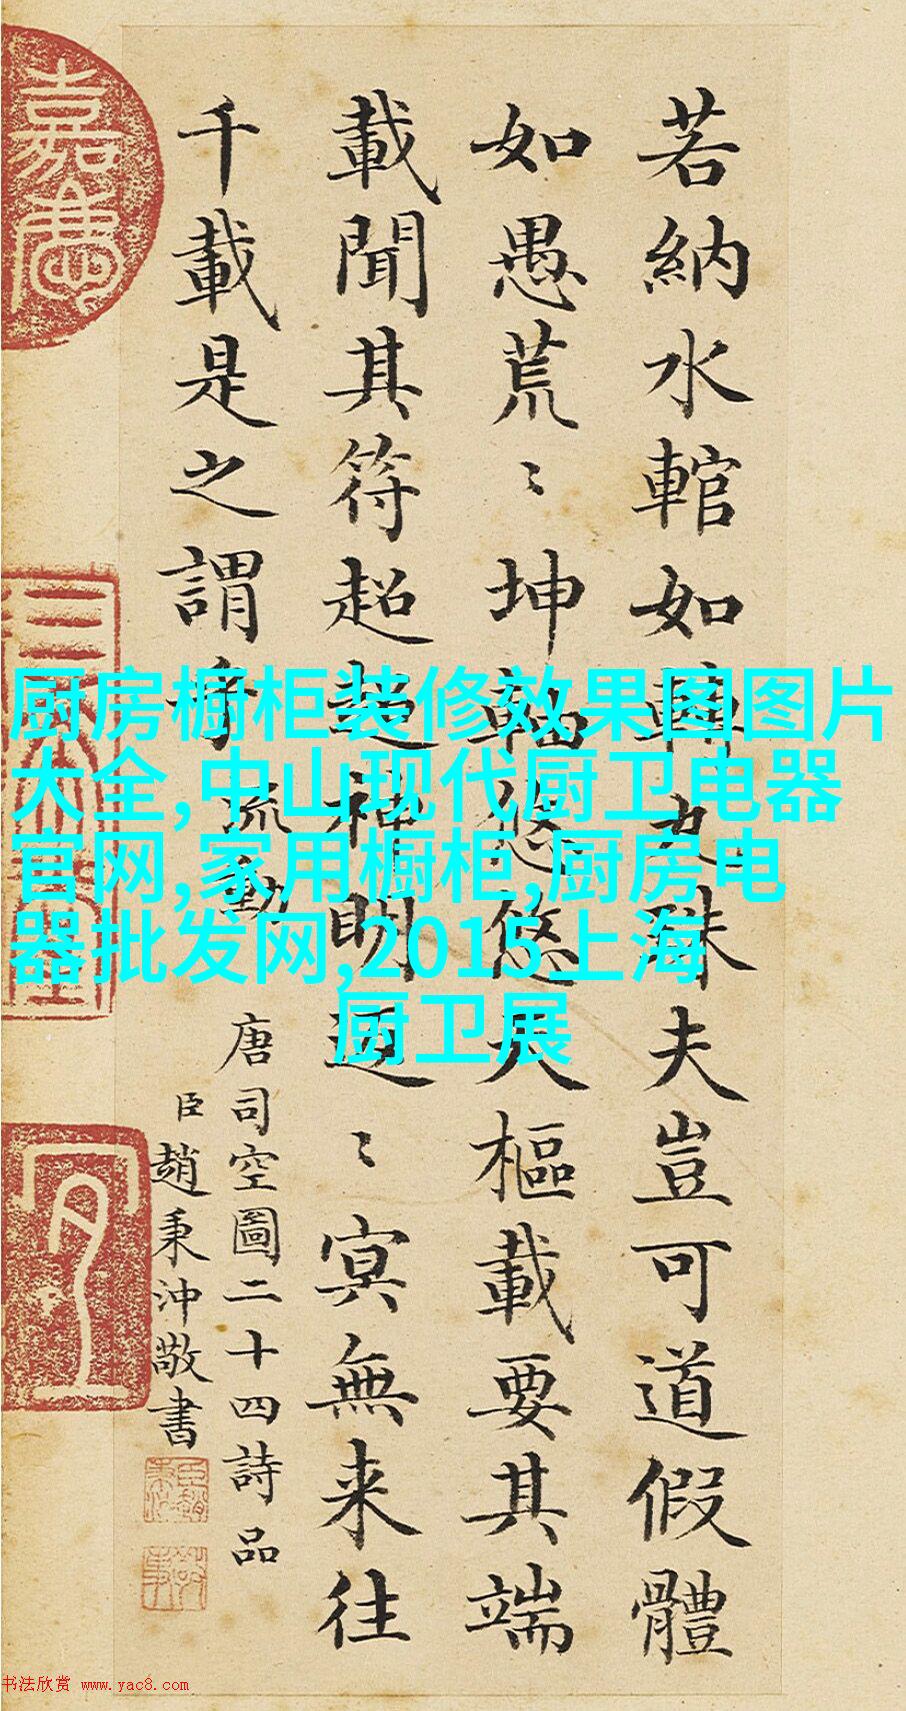 若納水輨如轉丸珠夫豈可道假體
如愚荒〻坤軸悠悠天樞載要其端
載聞其符超超神明返〻冥無来往
千載是之謂乎
流動
唐司空圖二十四詩品
臣趙秉沖敬書
厨房橱柜装修效果图图片
大全,中山现代厨卫电器
官网,家用橱柜,厨房电
器批发网,2015上海
厨卫展
书法欣赏 www.yac8.com